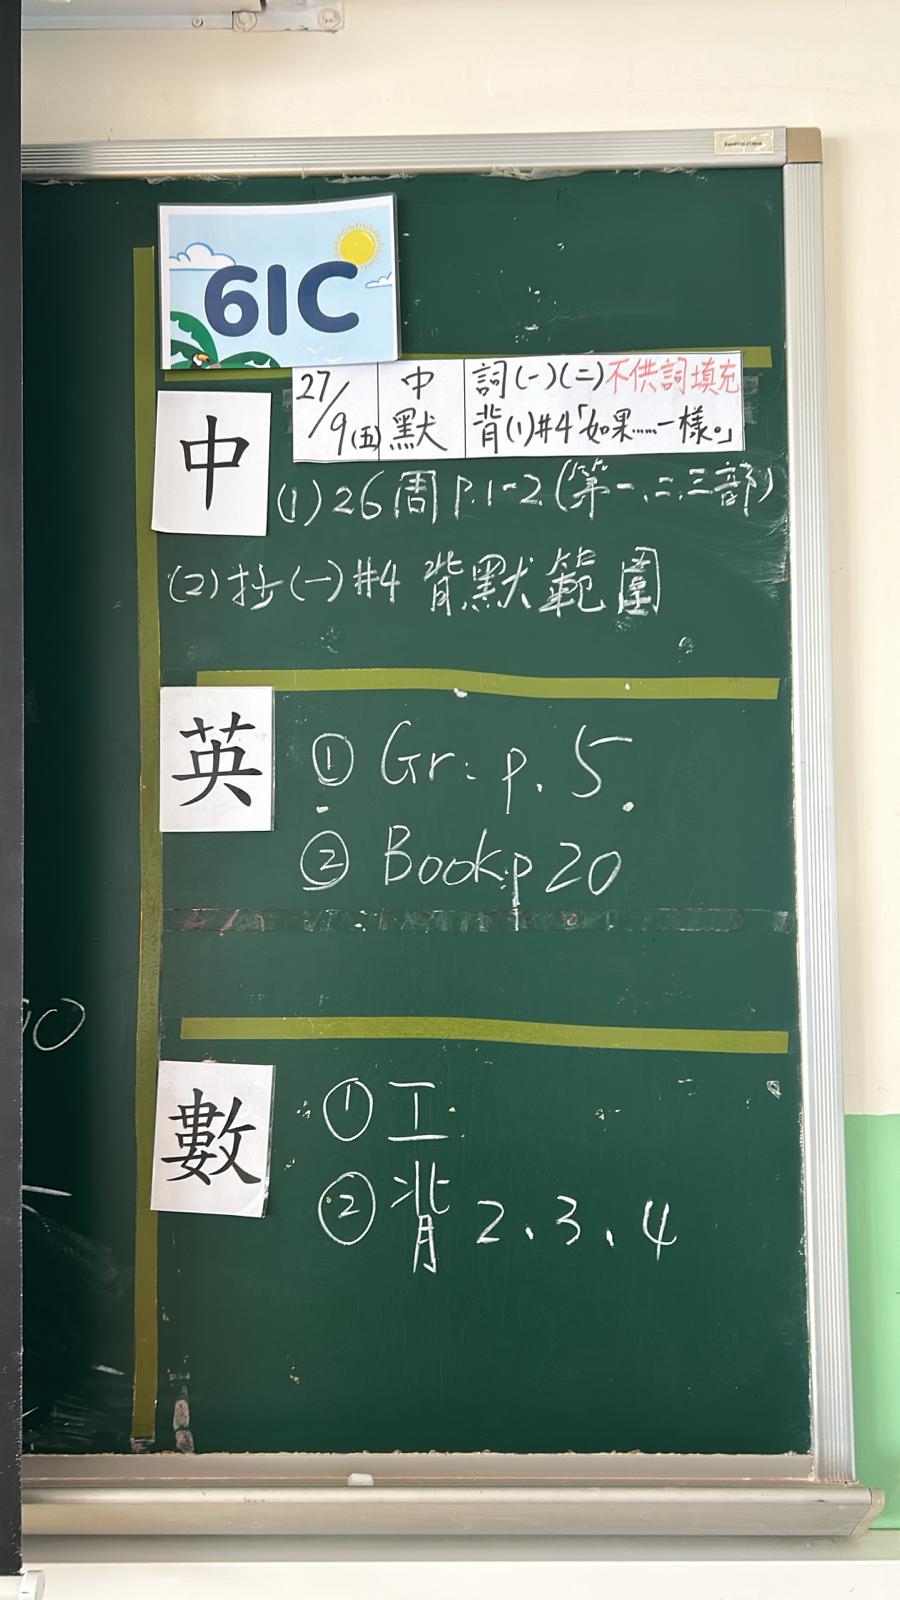 61C
27/9(五) 中默 詞(一)(二)不供詞填充
背(1)#4「如果……一樣。」
中
(1) 26周 P.1-2 (第一、二、三部)
(2) 抄(一)#4 背默範圍
英
① Gr: p. 5
② Book:p 20
數
① 工
② 背 2、3、4